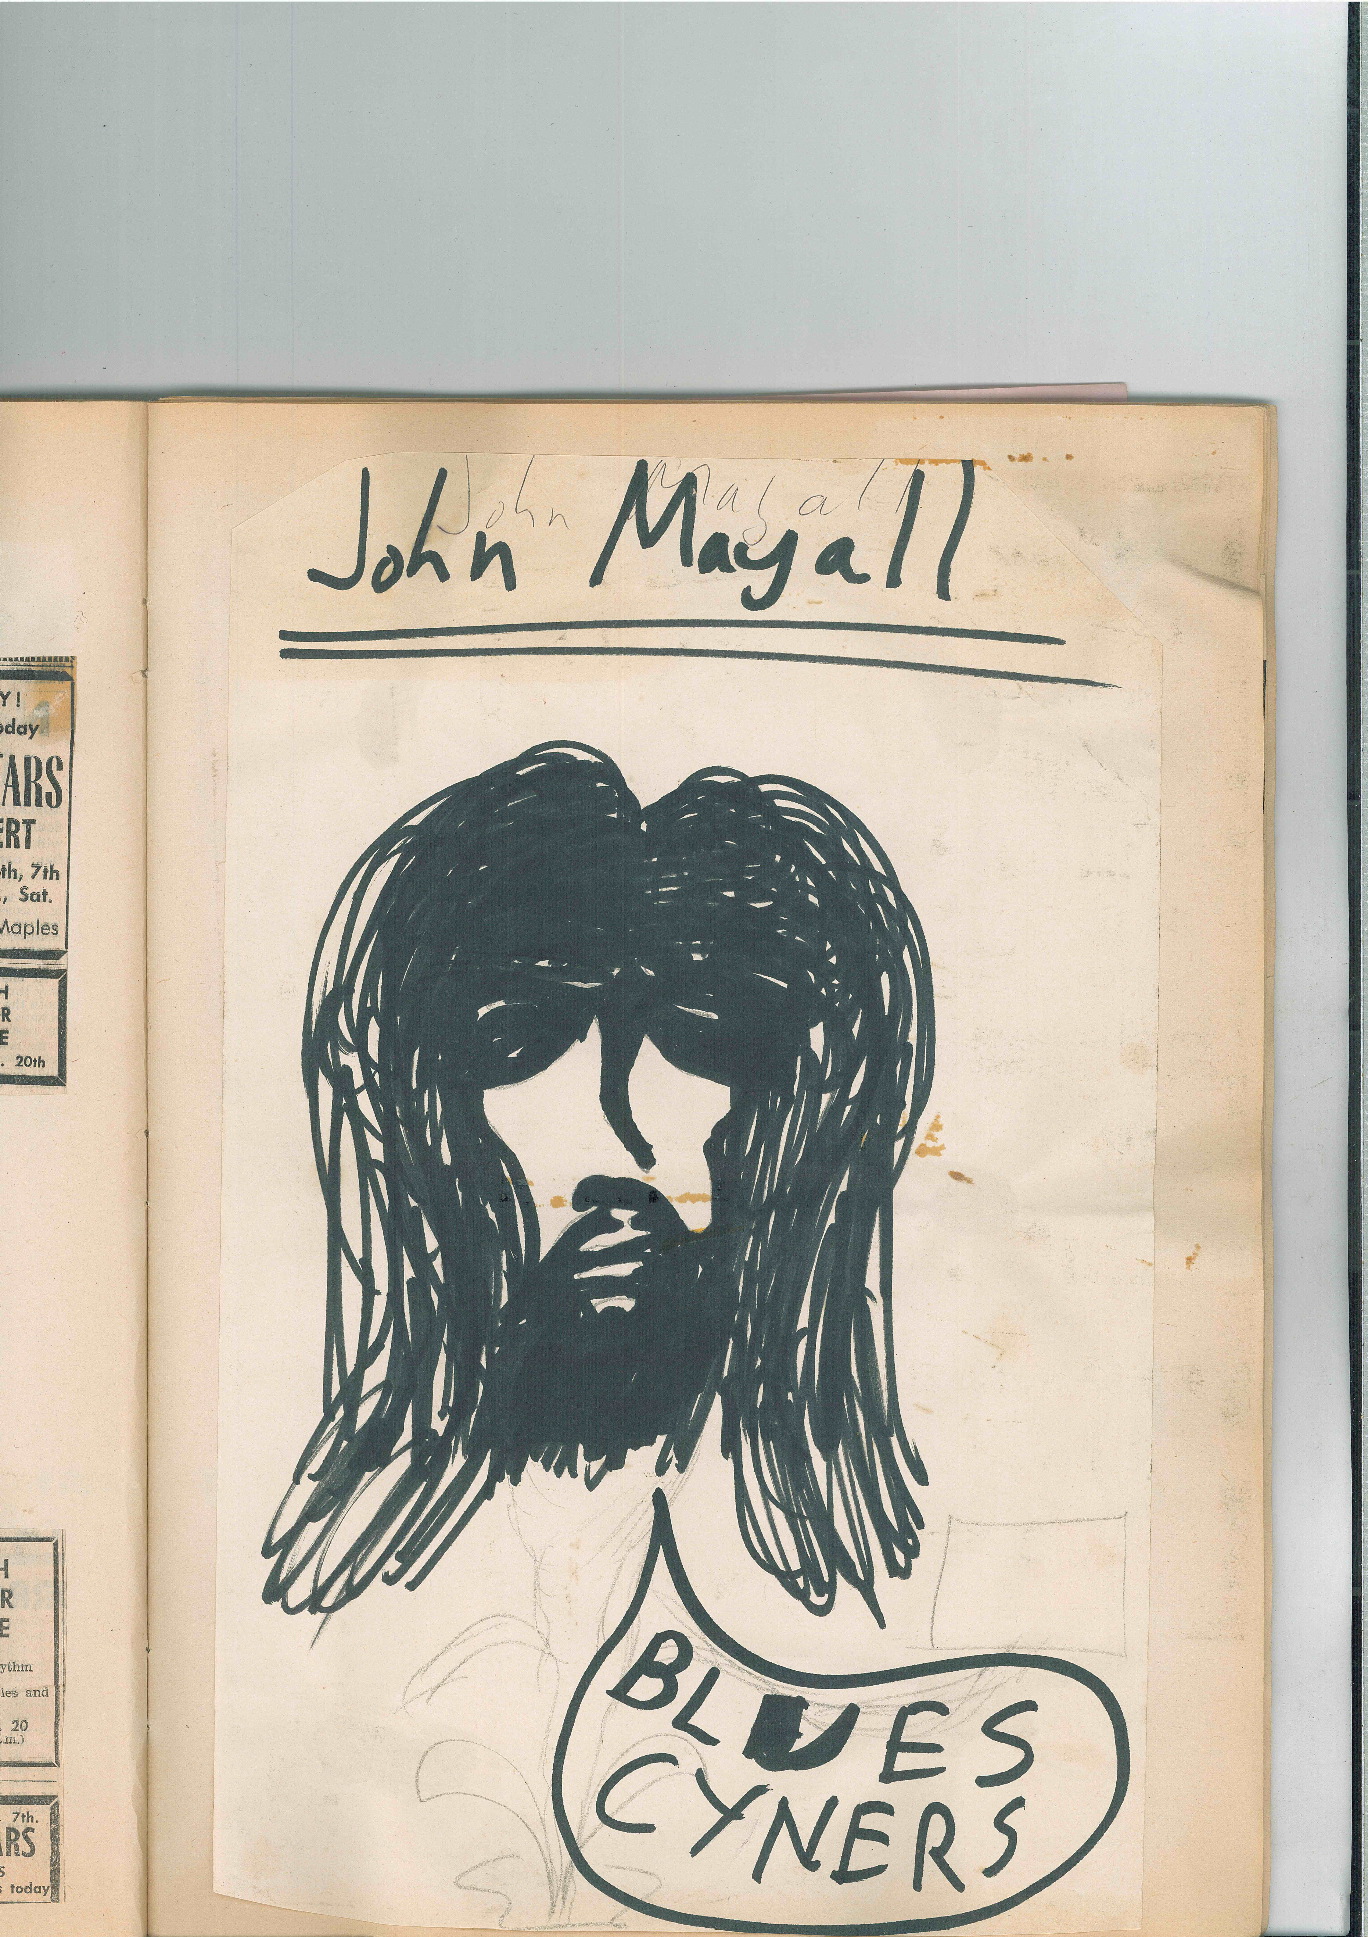 John Mayall
John Mayall
BLUES
CYNERS
Y!
oday
ARS
ERT
th, 7th
., Sat.
Maples
H
R
E
. 20th
H
R
E
ythm
ies and
20
.m.)
7th.
ARS
S
s today